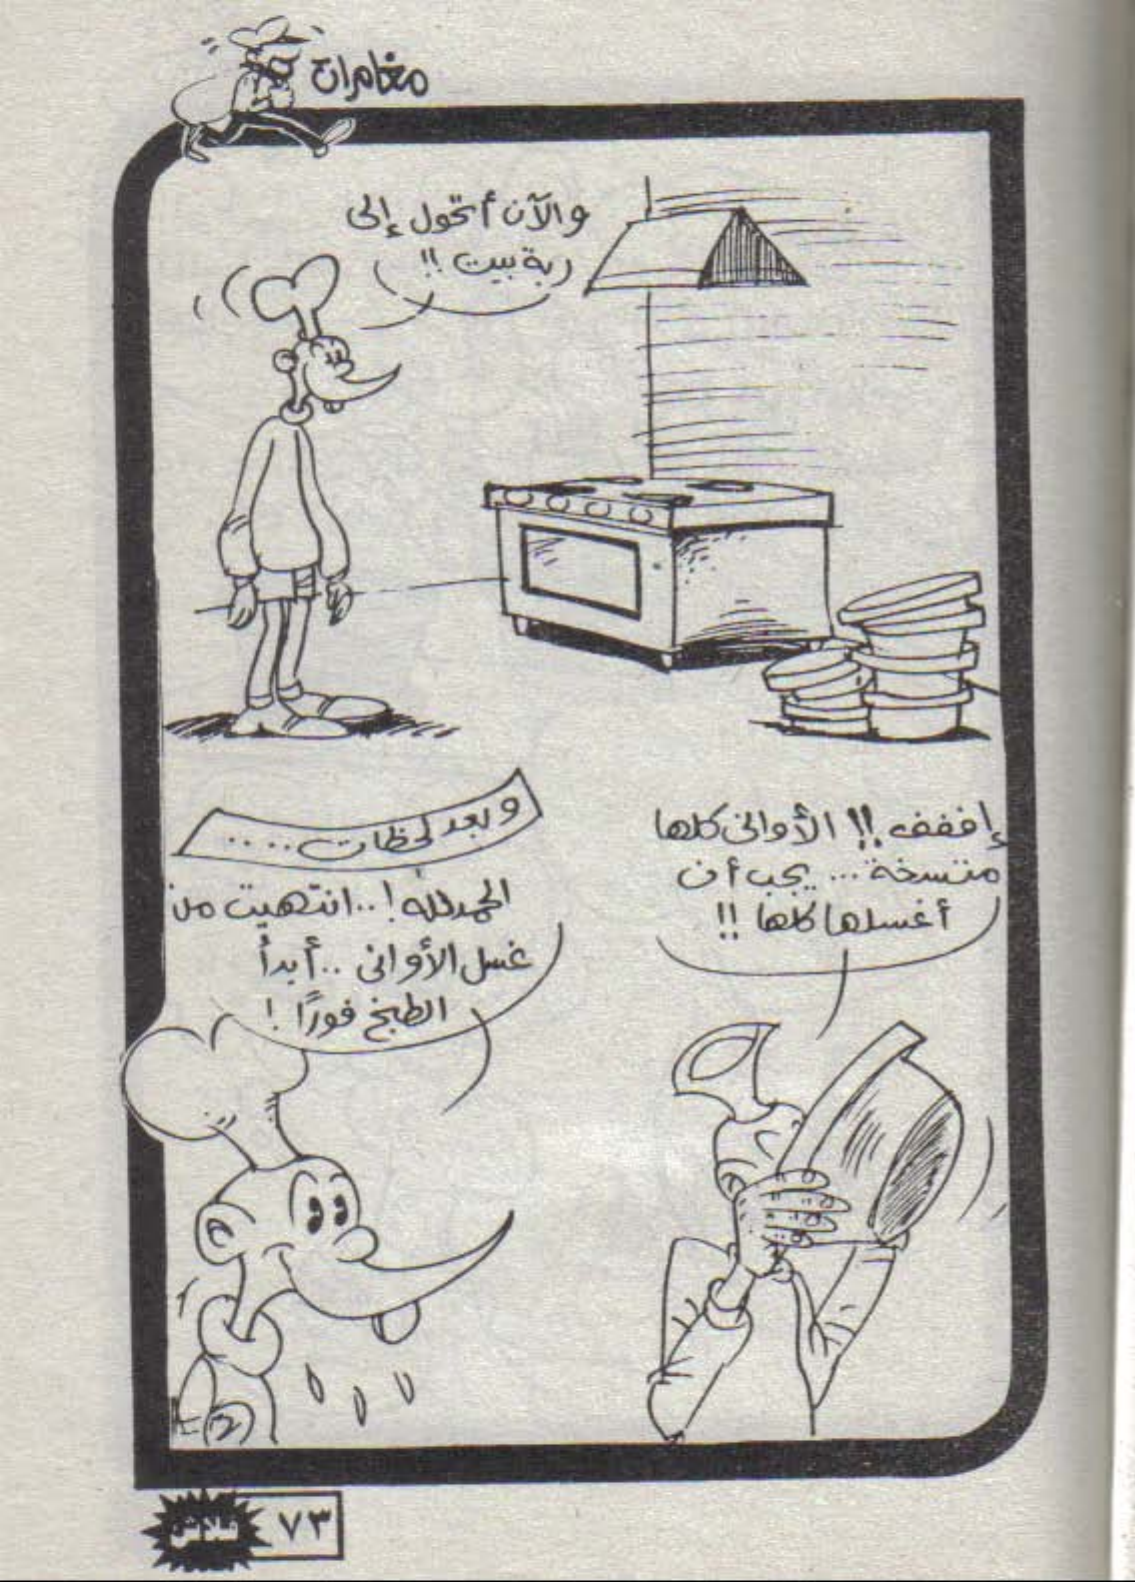 مغامرات
والآن أتحول إلى
ربة بيت !!
إففف !! الأوانى كلها
متسخة ... يجب أن
أغسلها كلها !!
وبعد لحظات ....
الحمدلله ! .. انتهيت من
غسل الأوانى .. أبدأ
الطبخ فورًا !
٧٣
فلاش